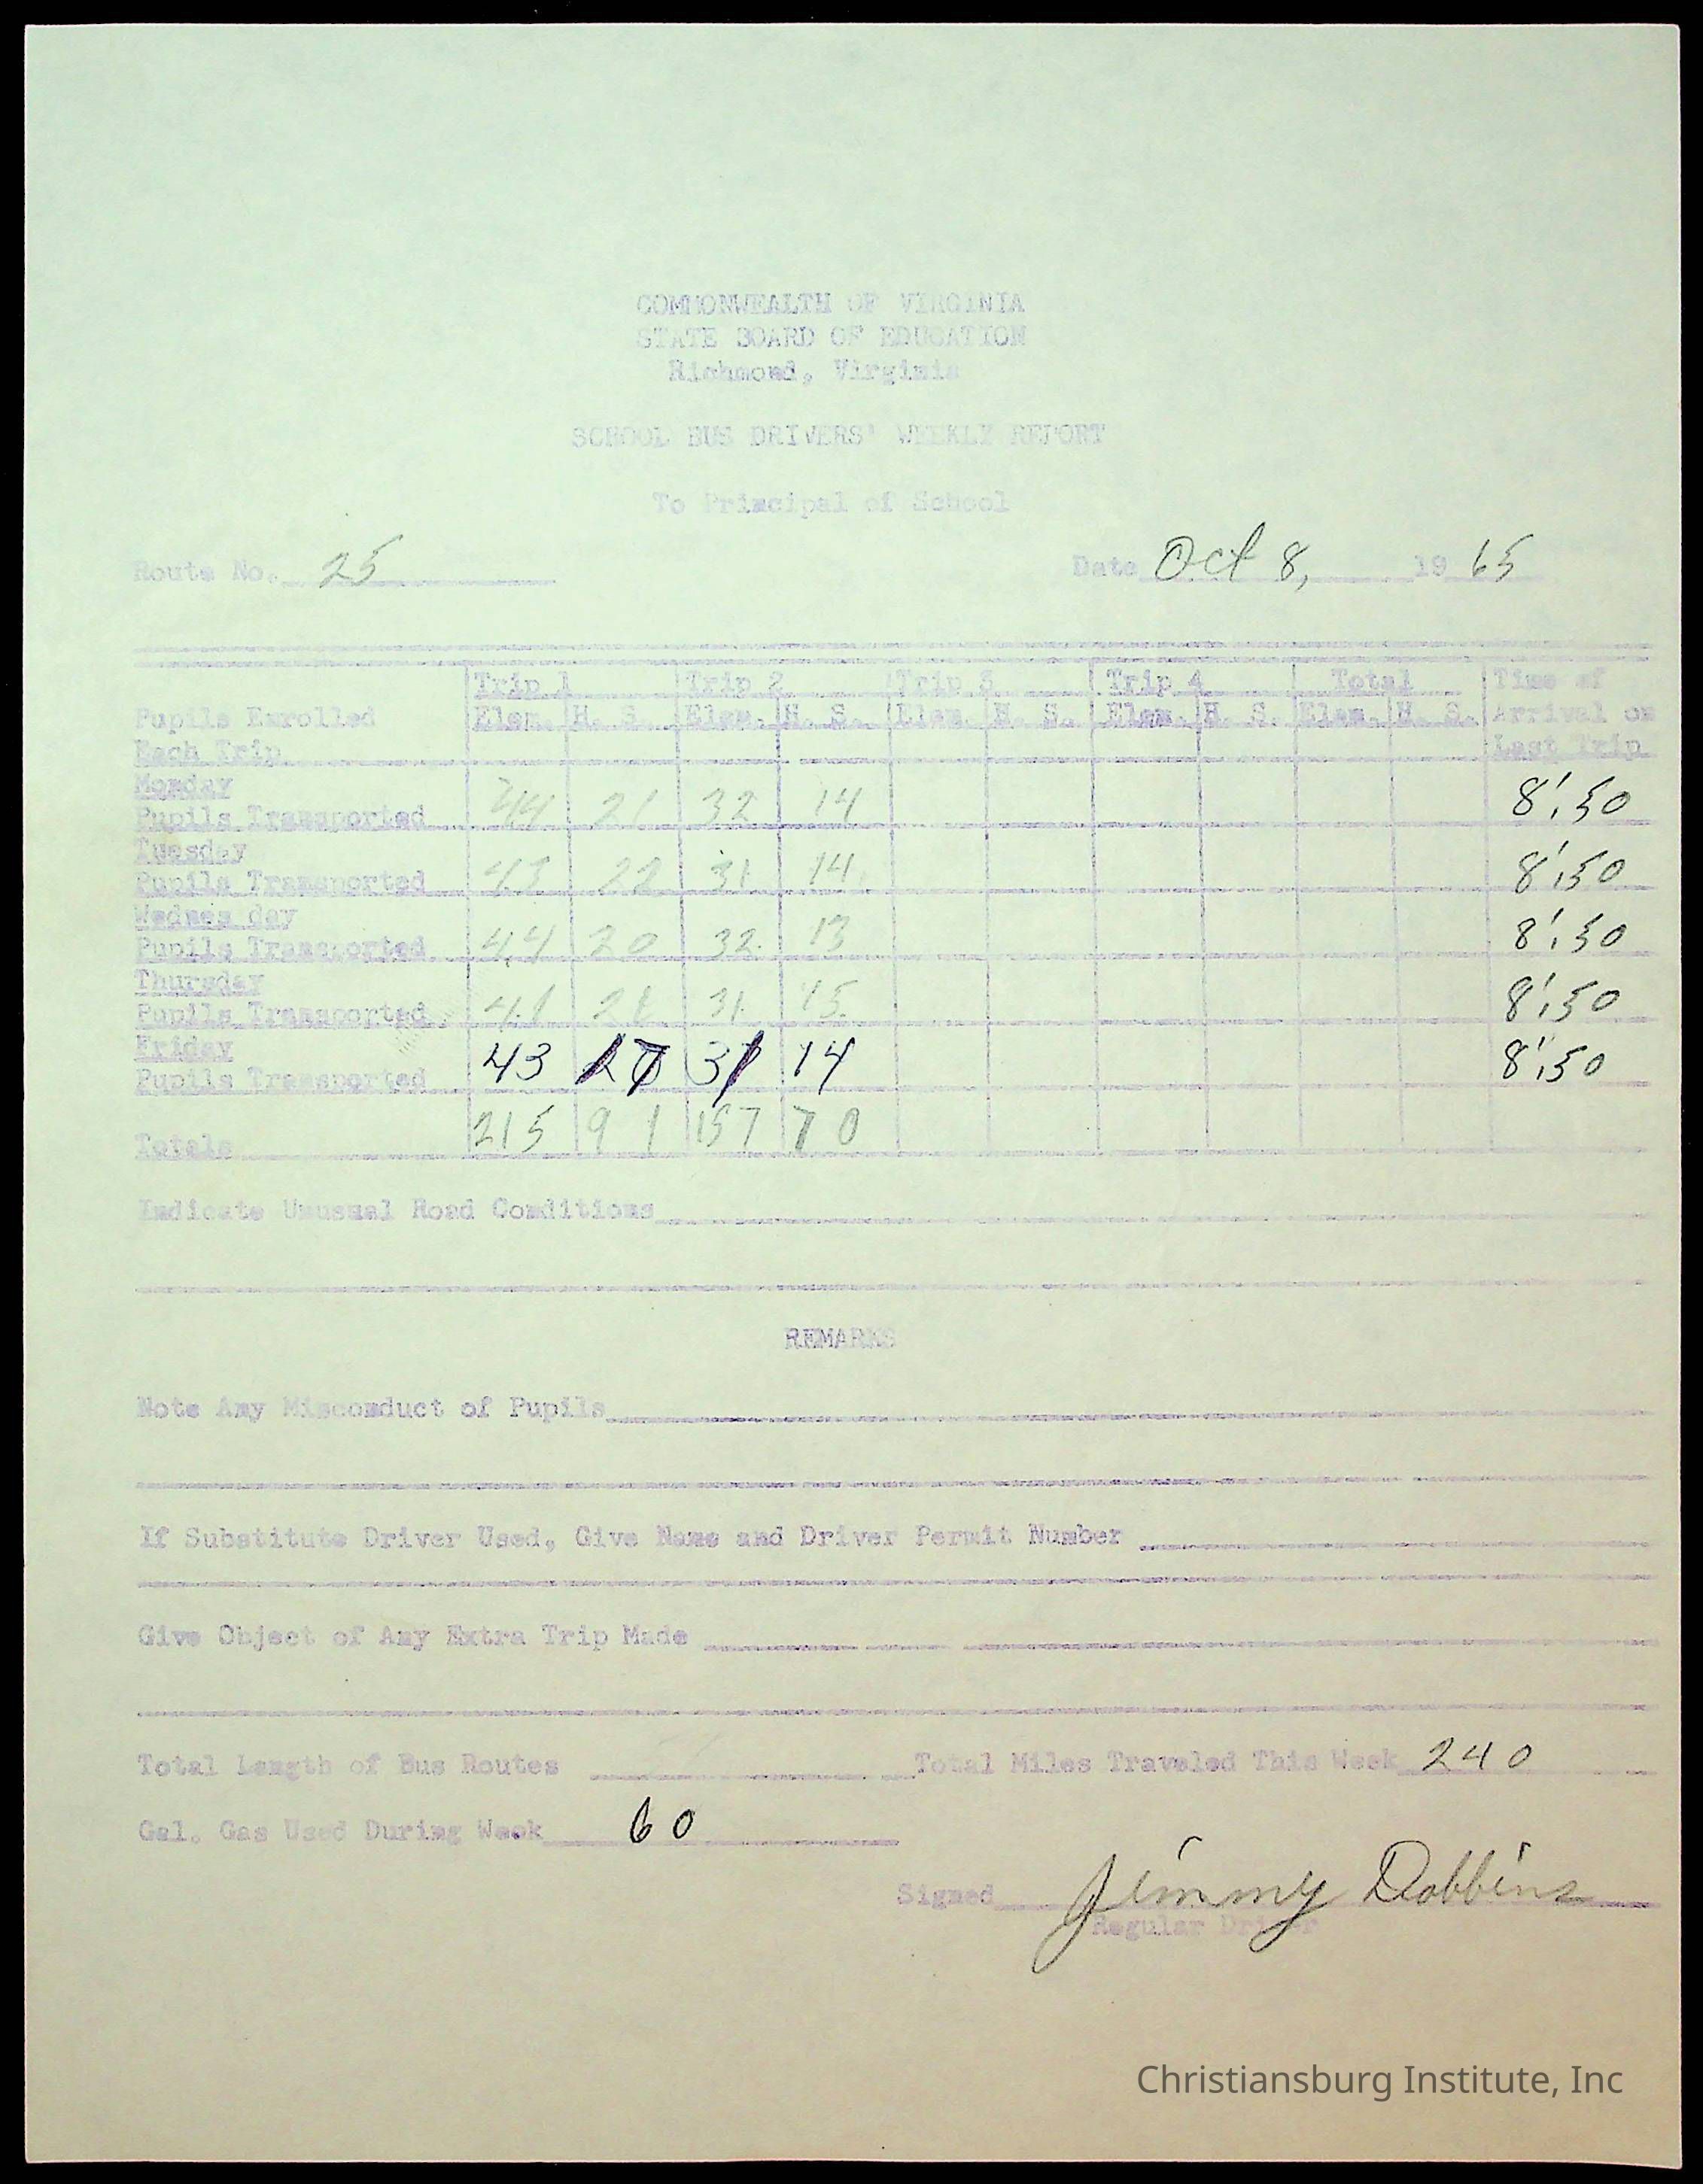 COMMONWEALTH OF VIRGINIA
STATE BOARD OF EDUCATION
Richmond, Virginia
SCHOOL BUS DRIVERS' WEEKLY REPORT
To Principal of School
Route No. 25 Date Oct 8, 19 65
Trip 1 Trip 2 Trip 3 Trip 4 Total Time of
Pupils Enrolled Elem. H. S. Elem. H. S. Elem. H. S. Elem. H. S. Elem. H. S. Arrival on
Each Trip Last Trip
Monday
Pupils Transported 44 21 32 14 8:50
Tuesday
Pupils Transported 43 22 31 14 8:50
Wednesday
Pupils Transported 44 20 32 13 8:50
Thursday
Pupils Transported 41 21 31 15 8:50
Friday
Pupils Transported 43 31 14 8:50
Totals 215 91 157 70
Indicate Unusual Road Conditions
REMARKS
Note Any Misconduct of Pupils
If Substitute Driver Used, Give Name and Driver Permit Number
Give Object of Any Extra Trip Made
Total Length of Bus Routes Total Miles Traveled This Week 240
Gal. Gas Used During Week 60
Signed Jimmy Dobbins
Regular Driver
Christiansburg Institute, Inc